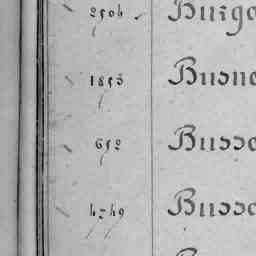 2504 Burgo
1853 Busne
652 Busso
4749 Busso